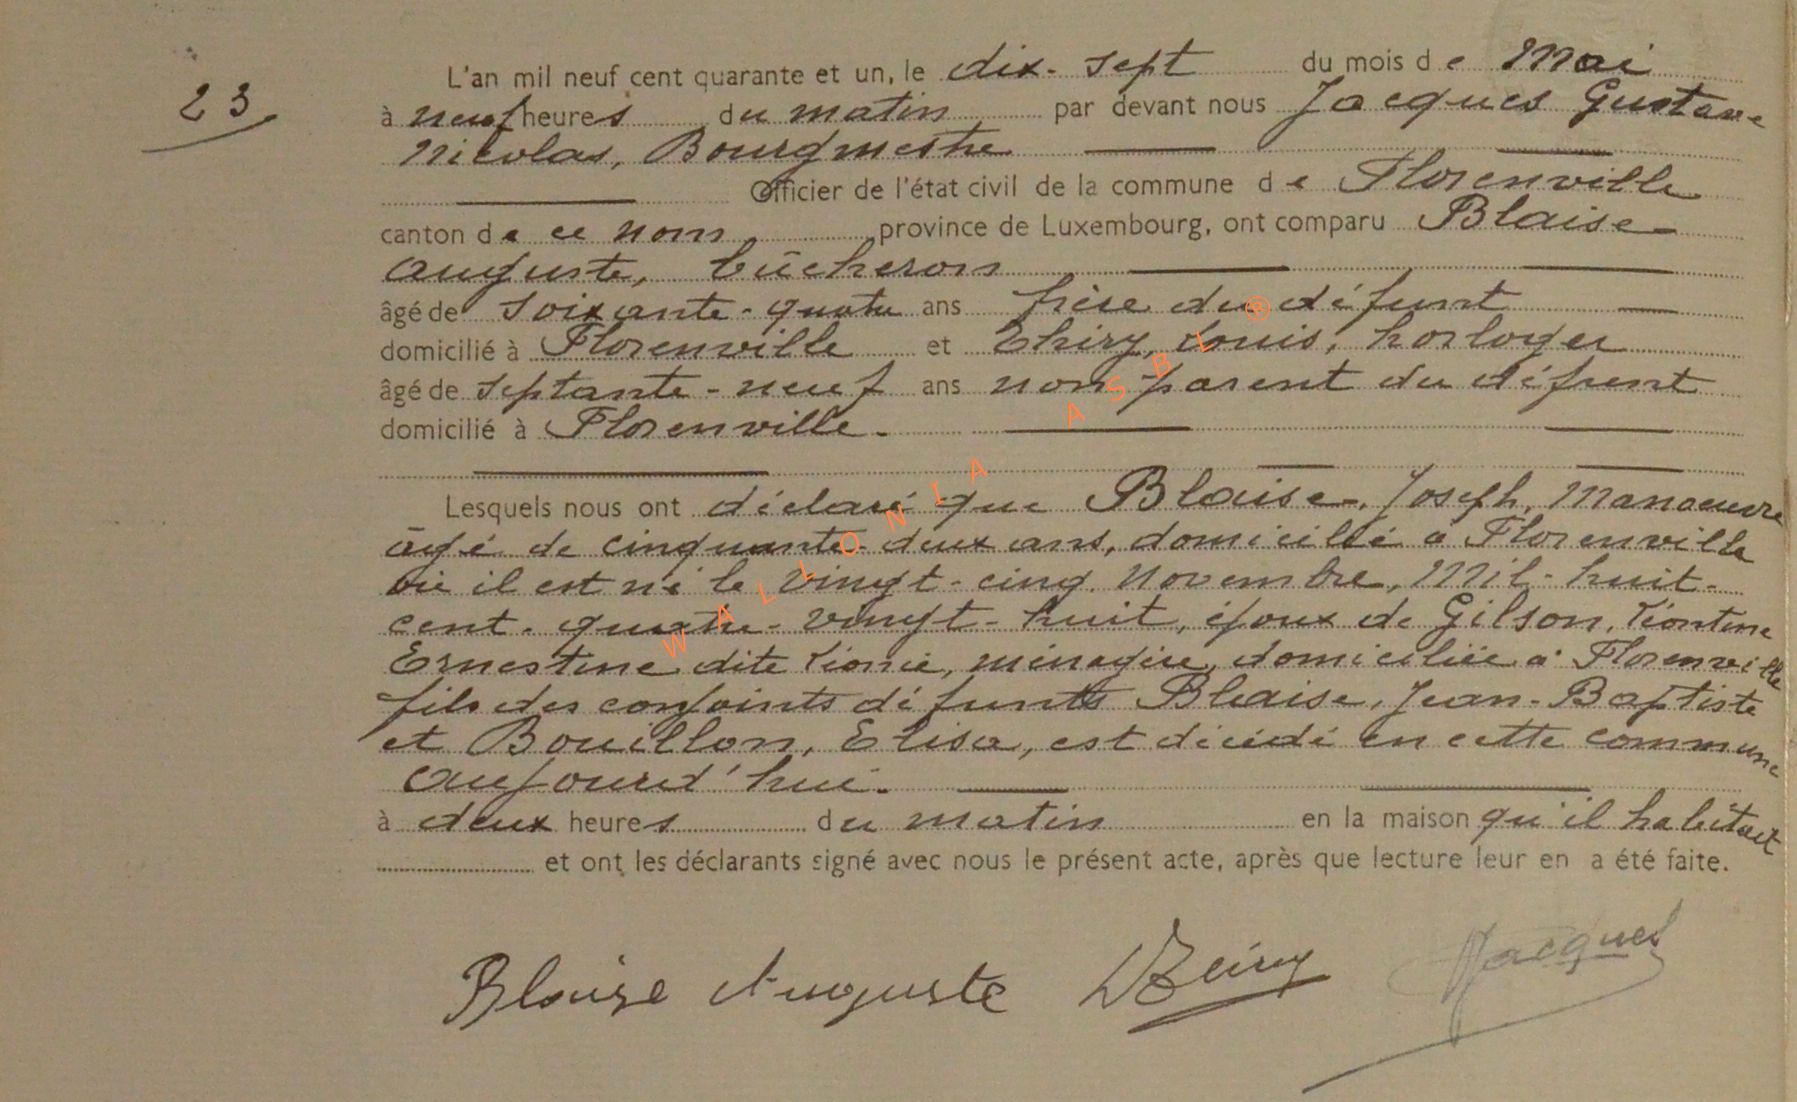 23
L'an mil neuf cent quarante et un, le dix-sept du mois de Mai
à neuf heures du matin par devant nous Jacques Gustave
Nicolas, Bourgmestre
Officier de l'état civil de la commune de Florenville
canton de ce nom province de Luxembourg, ont comparu Blaise
Auguste, bûcheron
âgé de soixante-quatre ans frère du défunt
domicilié à Florenville et Thiry, Louis, horloger
âgé de septante-neuf ans non parent du défunt
domicilié à Florenville.
Lesquels nous ont déclaré que Blaise, Joseph, Manoeuvre
âgé de cinquante-deux ans, domicilié à Florenville
où il est né le vingt-cinq Novembre, Mil-huit-
cent-quatre-vingt-huit, époux de Gilson, Léontine
Ernestine dite Léonie, ménagère, domiciliée à Florenville
fils des conjoints défunts Blaise, Jean-Baptiste
et Bouillon, Elisa, est décédé en cette commune
aujourd'hui.
à deux heures du matin en la maison qu'il habitait
et ont les déclarants signé avec nous le présent acte, après que lecture leur en a été faite.
Blaise Auguste LThiry Jacques
WALLONIA ASBL ®